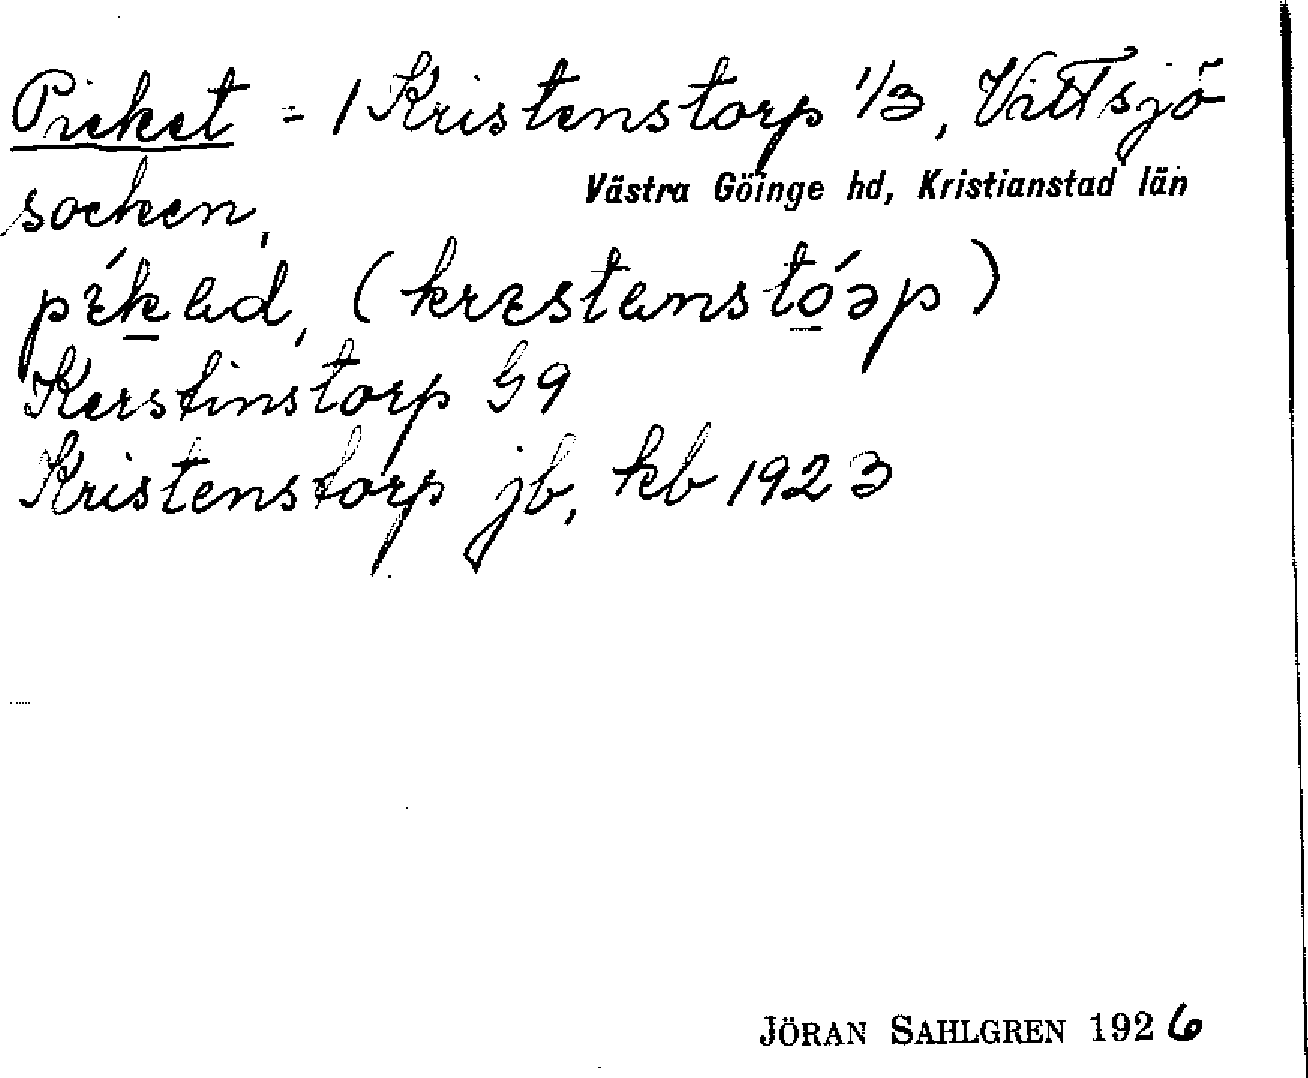 Picket = 1 Kristenstorp 1/3, Vittsjö
socken,
Västra Göinge hd, Kristianstad län
píkəd, (krɪstənstóəp)
Kerstinstorp G9
Kristenstorp jb, kb 1923
JÖRAN SAHLGREN 1926